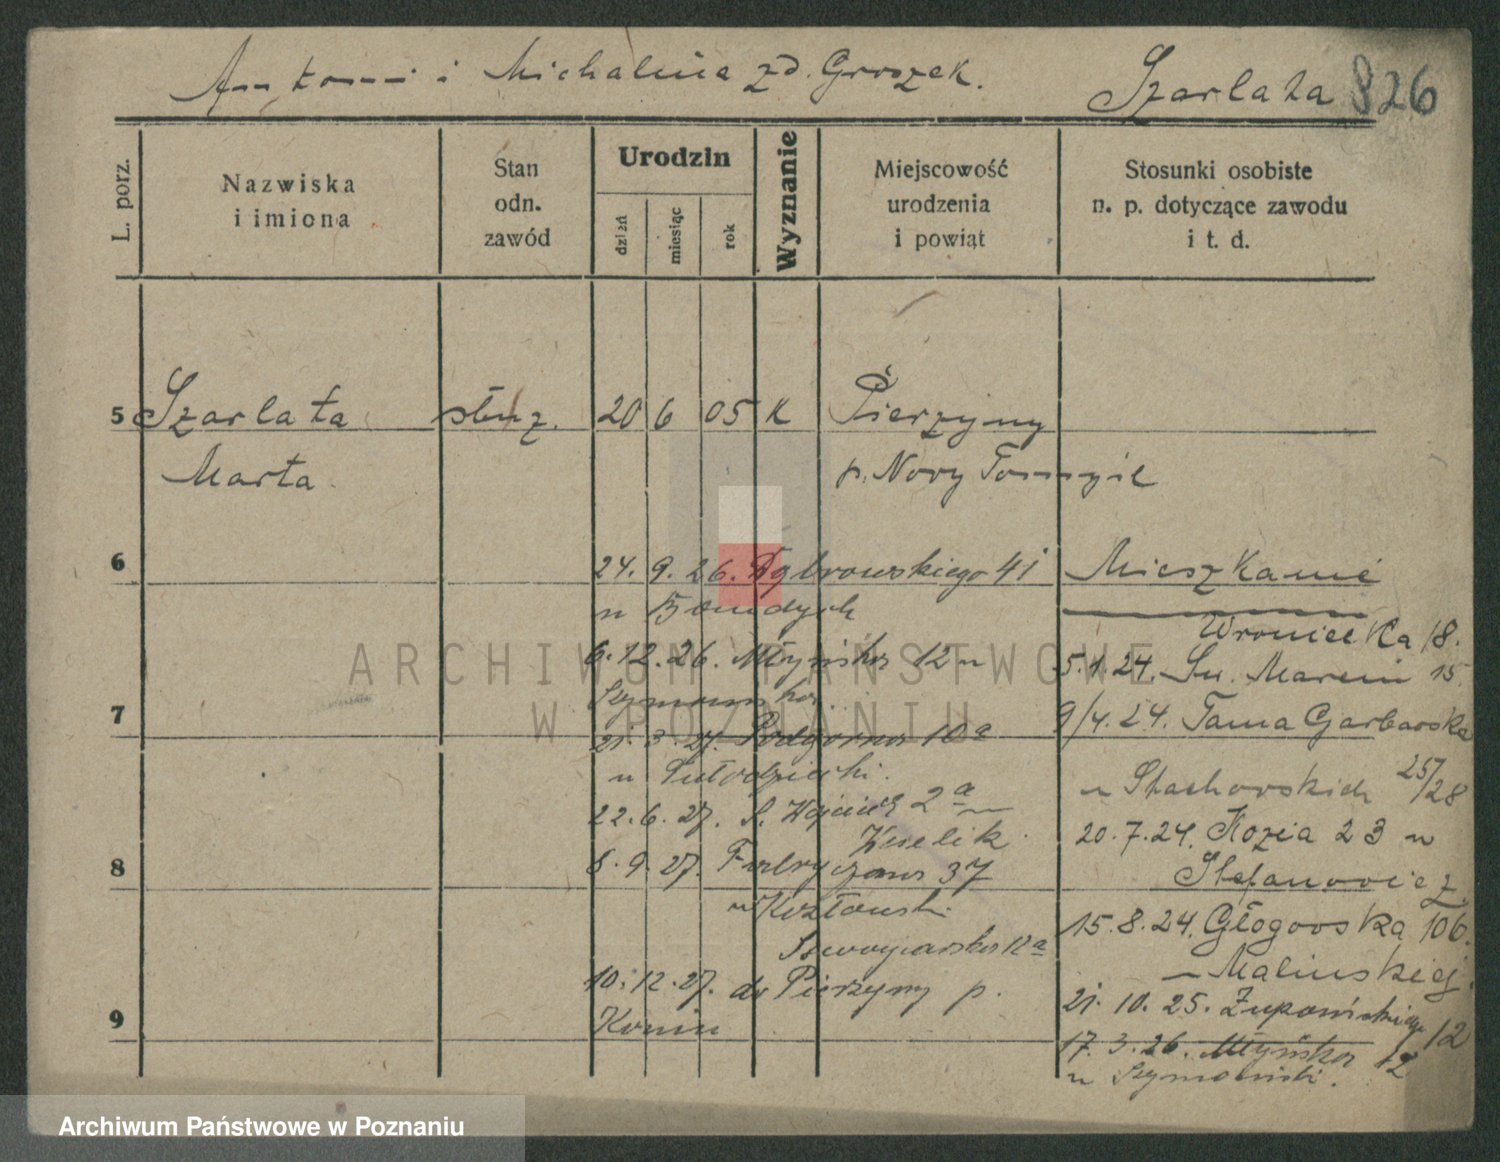 Antoni i Michalina zd. Groszek. Szarlata 826
L. porz.
Nazwiska
i imiona
Stan
odn.
zawód
Urodzin
dzień
miesiąc
rok
Wyznanie
Miejscowość
urodzenia
i powiat
Stosunki osobiste
n. p. dotyczące zawodu
i t. d.
5 Szarlata służ. 20 6 05 K Pierzyny
Marta p. Nowy Tomyśl
6
24. 9. 26. Dąbrowskiego 41
u
6.12.26. Młyńska 12 u
Szymańska
7
21. 3. 27. Podgórna 10a
u
22.6.27. S. Wojciech 2a u
Kuselik
8
8.9.27. Fabryczna 37
u Kozłowski
12a
10.12.27. do Pierzyny p.
9
Konin
Mieszkanie
Wroniecka 18.
5.1.24. Św. Marcin 15
9/4.24. Tama Garbarska
25/28
u Stachorskich
20.7.24. Kozia 23 u
Stefanowicz
15.8.24. Głogowska 106.
Malinskiej
21.10.25. Żupańskiego 12
17.3.26. Młyńska 12
u Szymański.
ARCHIWUM PAŃSTWOWE
W POZNANIU
Archiwum Państwowe w Poznaniu